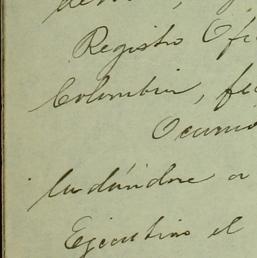 Registro Ofi
Colombia, fe
Ocurrió
ludándose a
Ejecutivo el